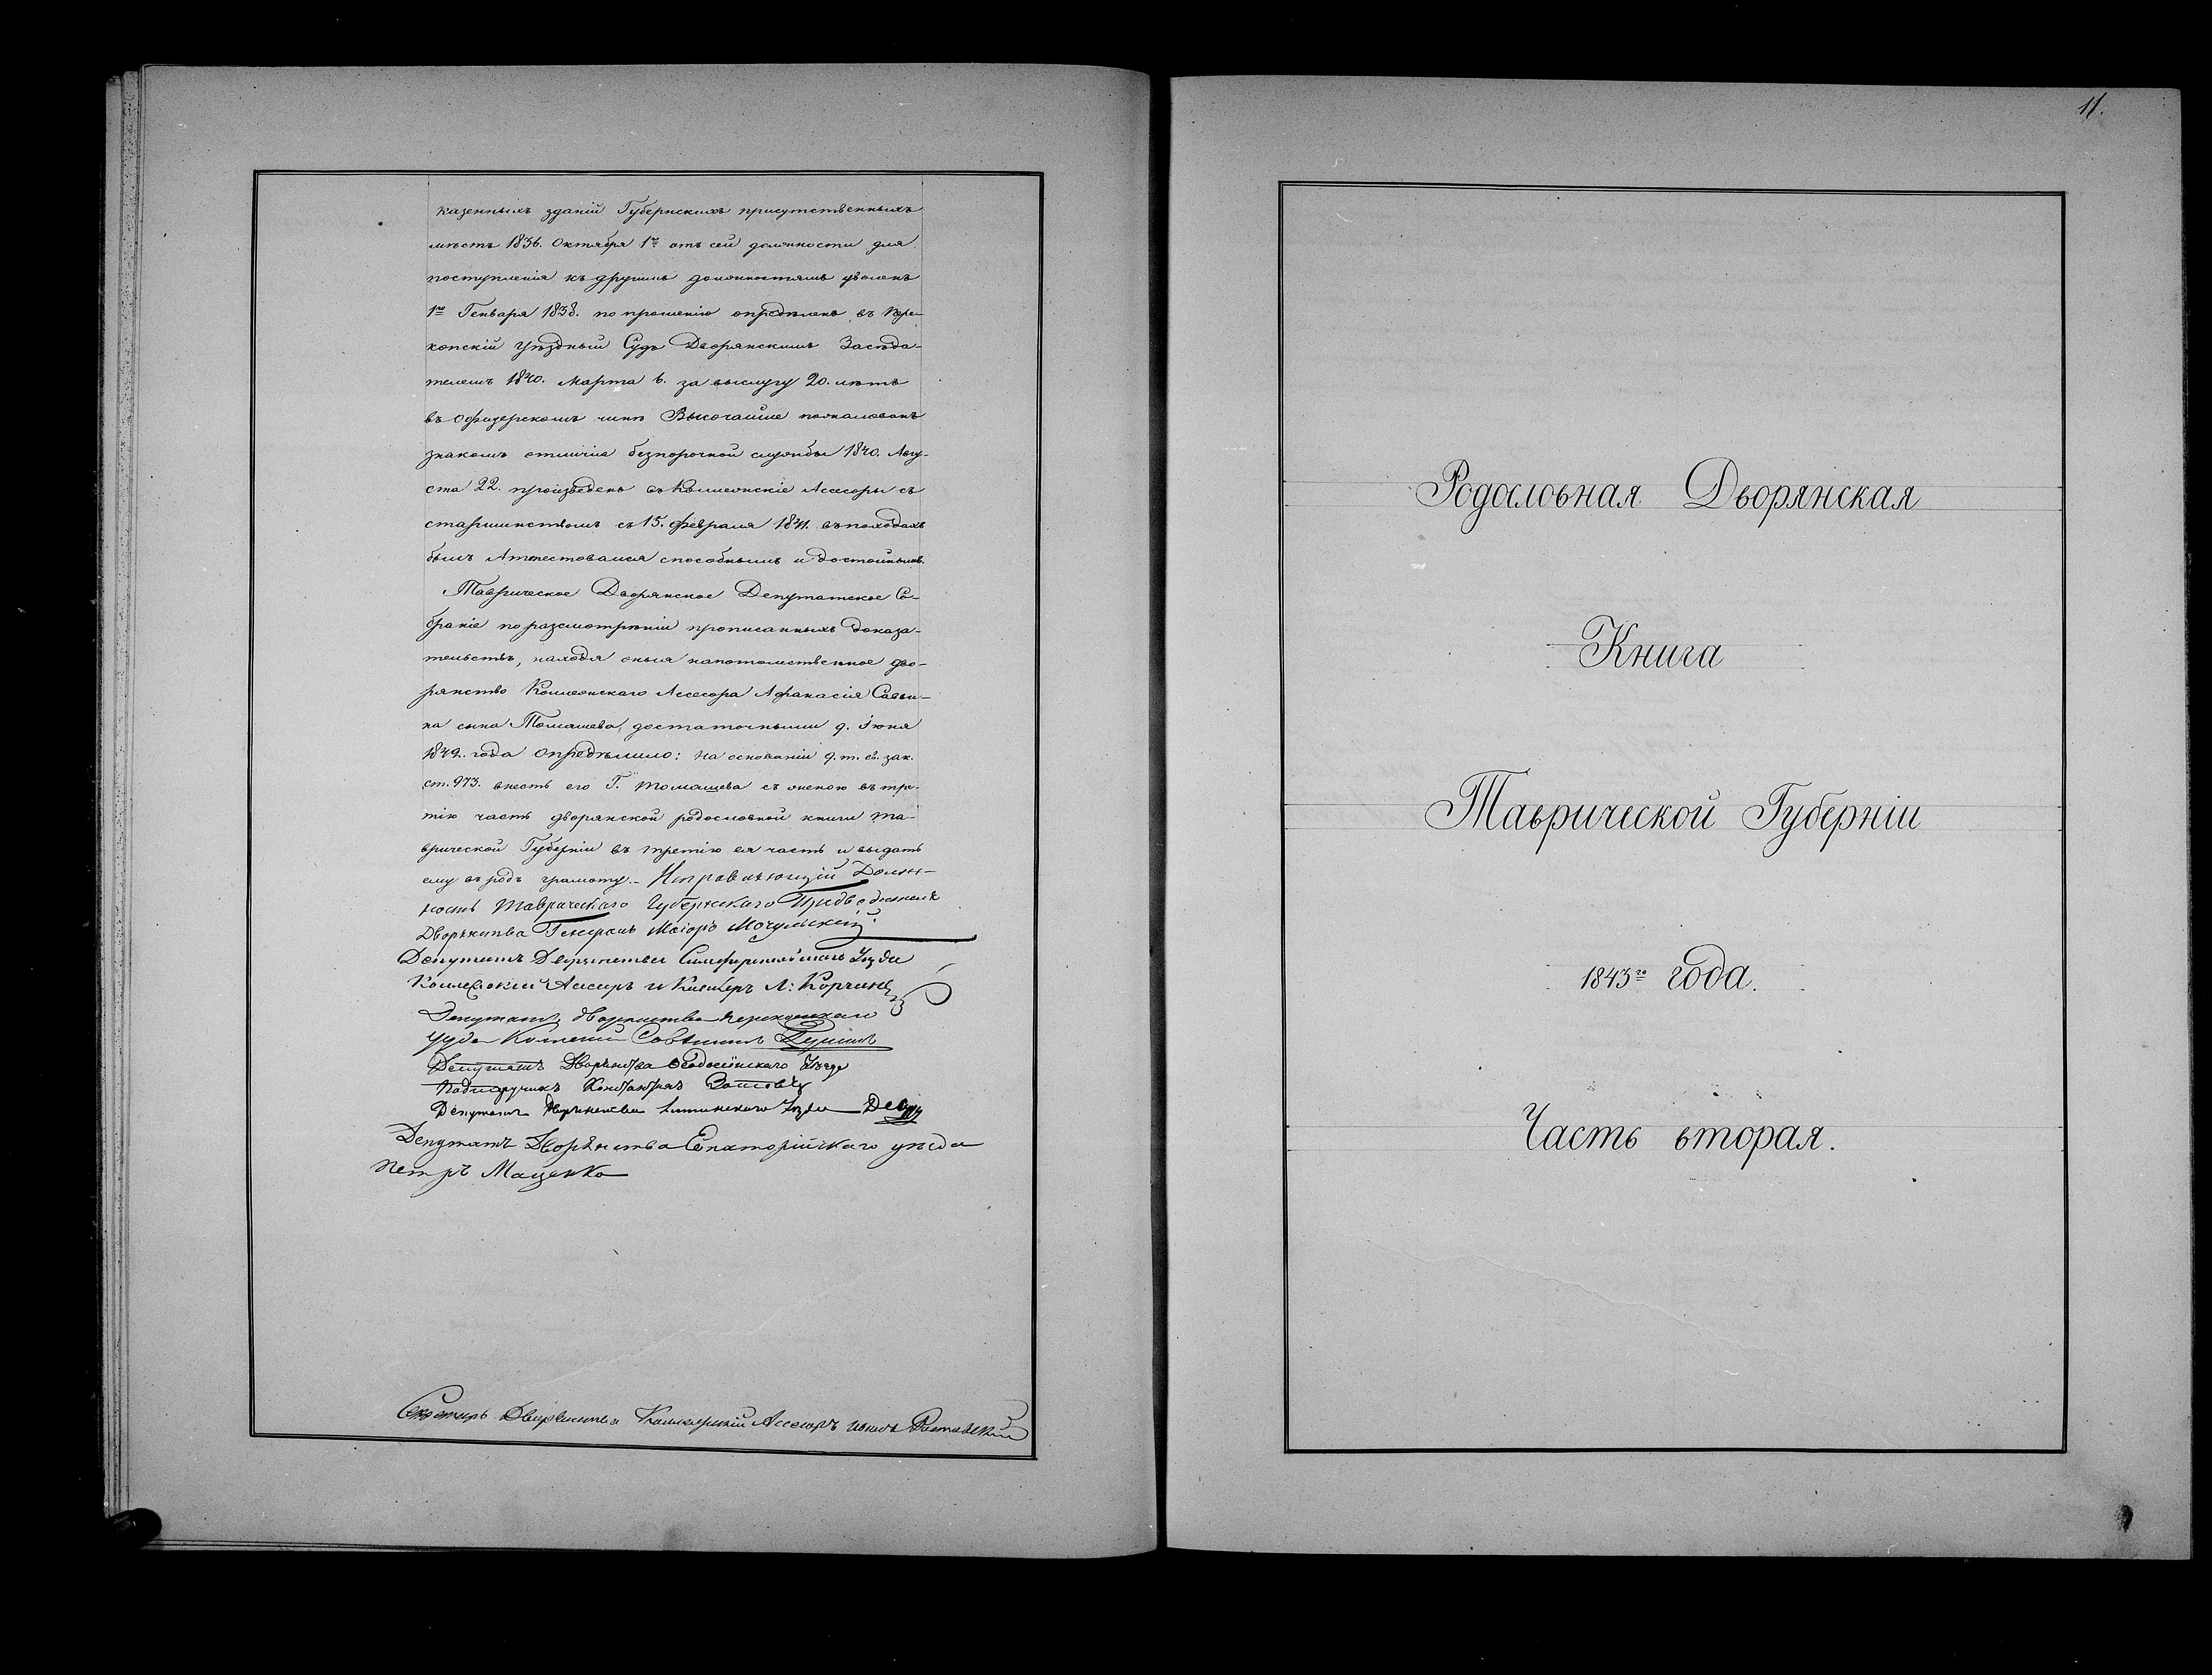 казенныхъ зданій Губернскихъ присутственныхъ
мѣстъ 1836. Октября 1го отъ сей должности для
поступленія къ другимъ должностямъ уволенъ
1го Генваря 1838. по прошенію опредѣленъ въ Пере-
копскій Уѣздный Судъ Дворянскимъ Засѣда-
телемъ 1840. Марта 6. за выслугу 20. лѣтъ
въ офицерскомъ чинѣ Высочайше пожалованъ
знакомъ отличія безпорочной службы 1840. Авгу-
ста 22. произведенъ въ Коллежскіе Асесоры съ
старшинствомъ съ 15. Февраля 1841. въ походахъ
былъ Аттестовался способнымъ и достойнымъ.
Таврическое Дворянское Депутатское Со-
браніе по разсмотрѣніи прописанныхъ доказа-
тельствъ, находя оныя напотомственное дво-
рянство Коллежскаго Асесора Афанасія Савви-
на сына Томашева, достаточными 9. Іюня
1842. года опредѣлило: на основаніи 9. т. св. зак.
ст. 973. внесть его Г. Томашева съ женою въ тре-
тію часть дворянской родословной книги Та-
врической Губерніи въ третію ея часть и выдать
ему въ родъ грамоту.- Исправляющій Долж-
ность Таврическаго Губернскаго Предводителя
Дворянства Генералъ Маіоръ
Депутатъ Дворянства Симферопольскаго Уѣзда
Коллежскій Асесоръ и Кавалеръ Л:
Депутатъ дворянства Перекопскаго
Уѣзда
Депутатъ Дворянства Ѳеодосійскаго Уѣзда
Подпоручикъ
Депутатъ Дворянства Ялтинскаго Уѣзда
Депутатъ Дворянства Евпаторійскаго уѣзда
Петръ Маценко
Секретарь Дворянства Коллежскій Асесоръ
11.
Родословная Дворянская
Книга
Таврической Губерніи
1843го года.
Часть вторая.